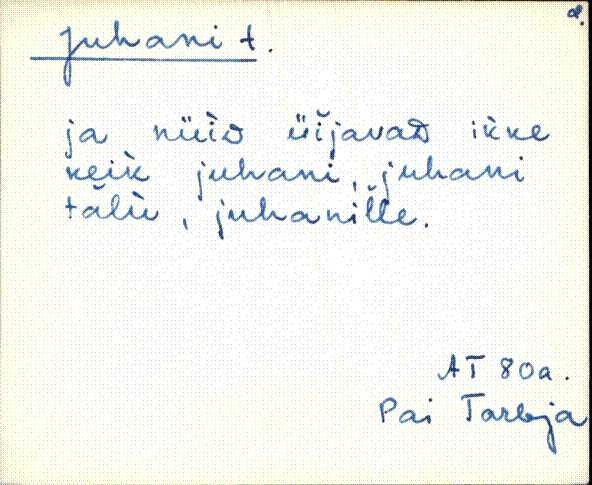 d.
juhani t.
ja nüiD üĭjavaD ikke
keik juhani, juhani
tălù, juhanĭlle.
AT 80a.
Pai Tarbja